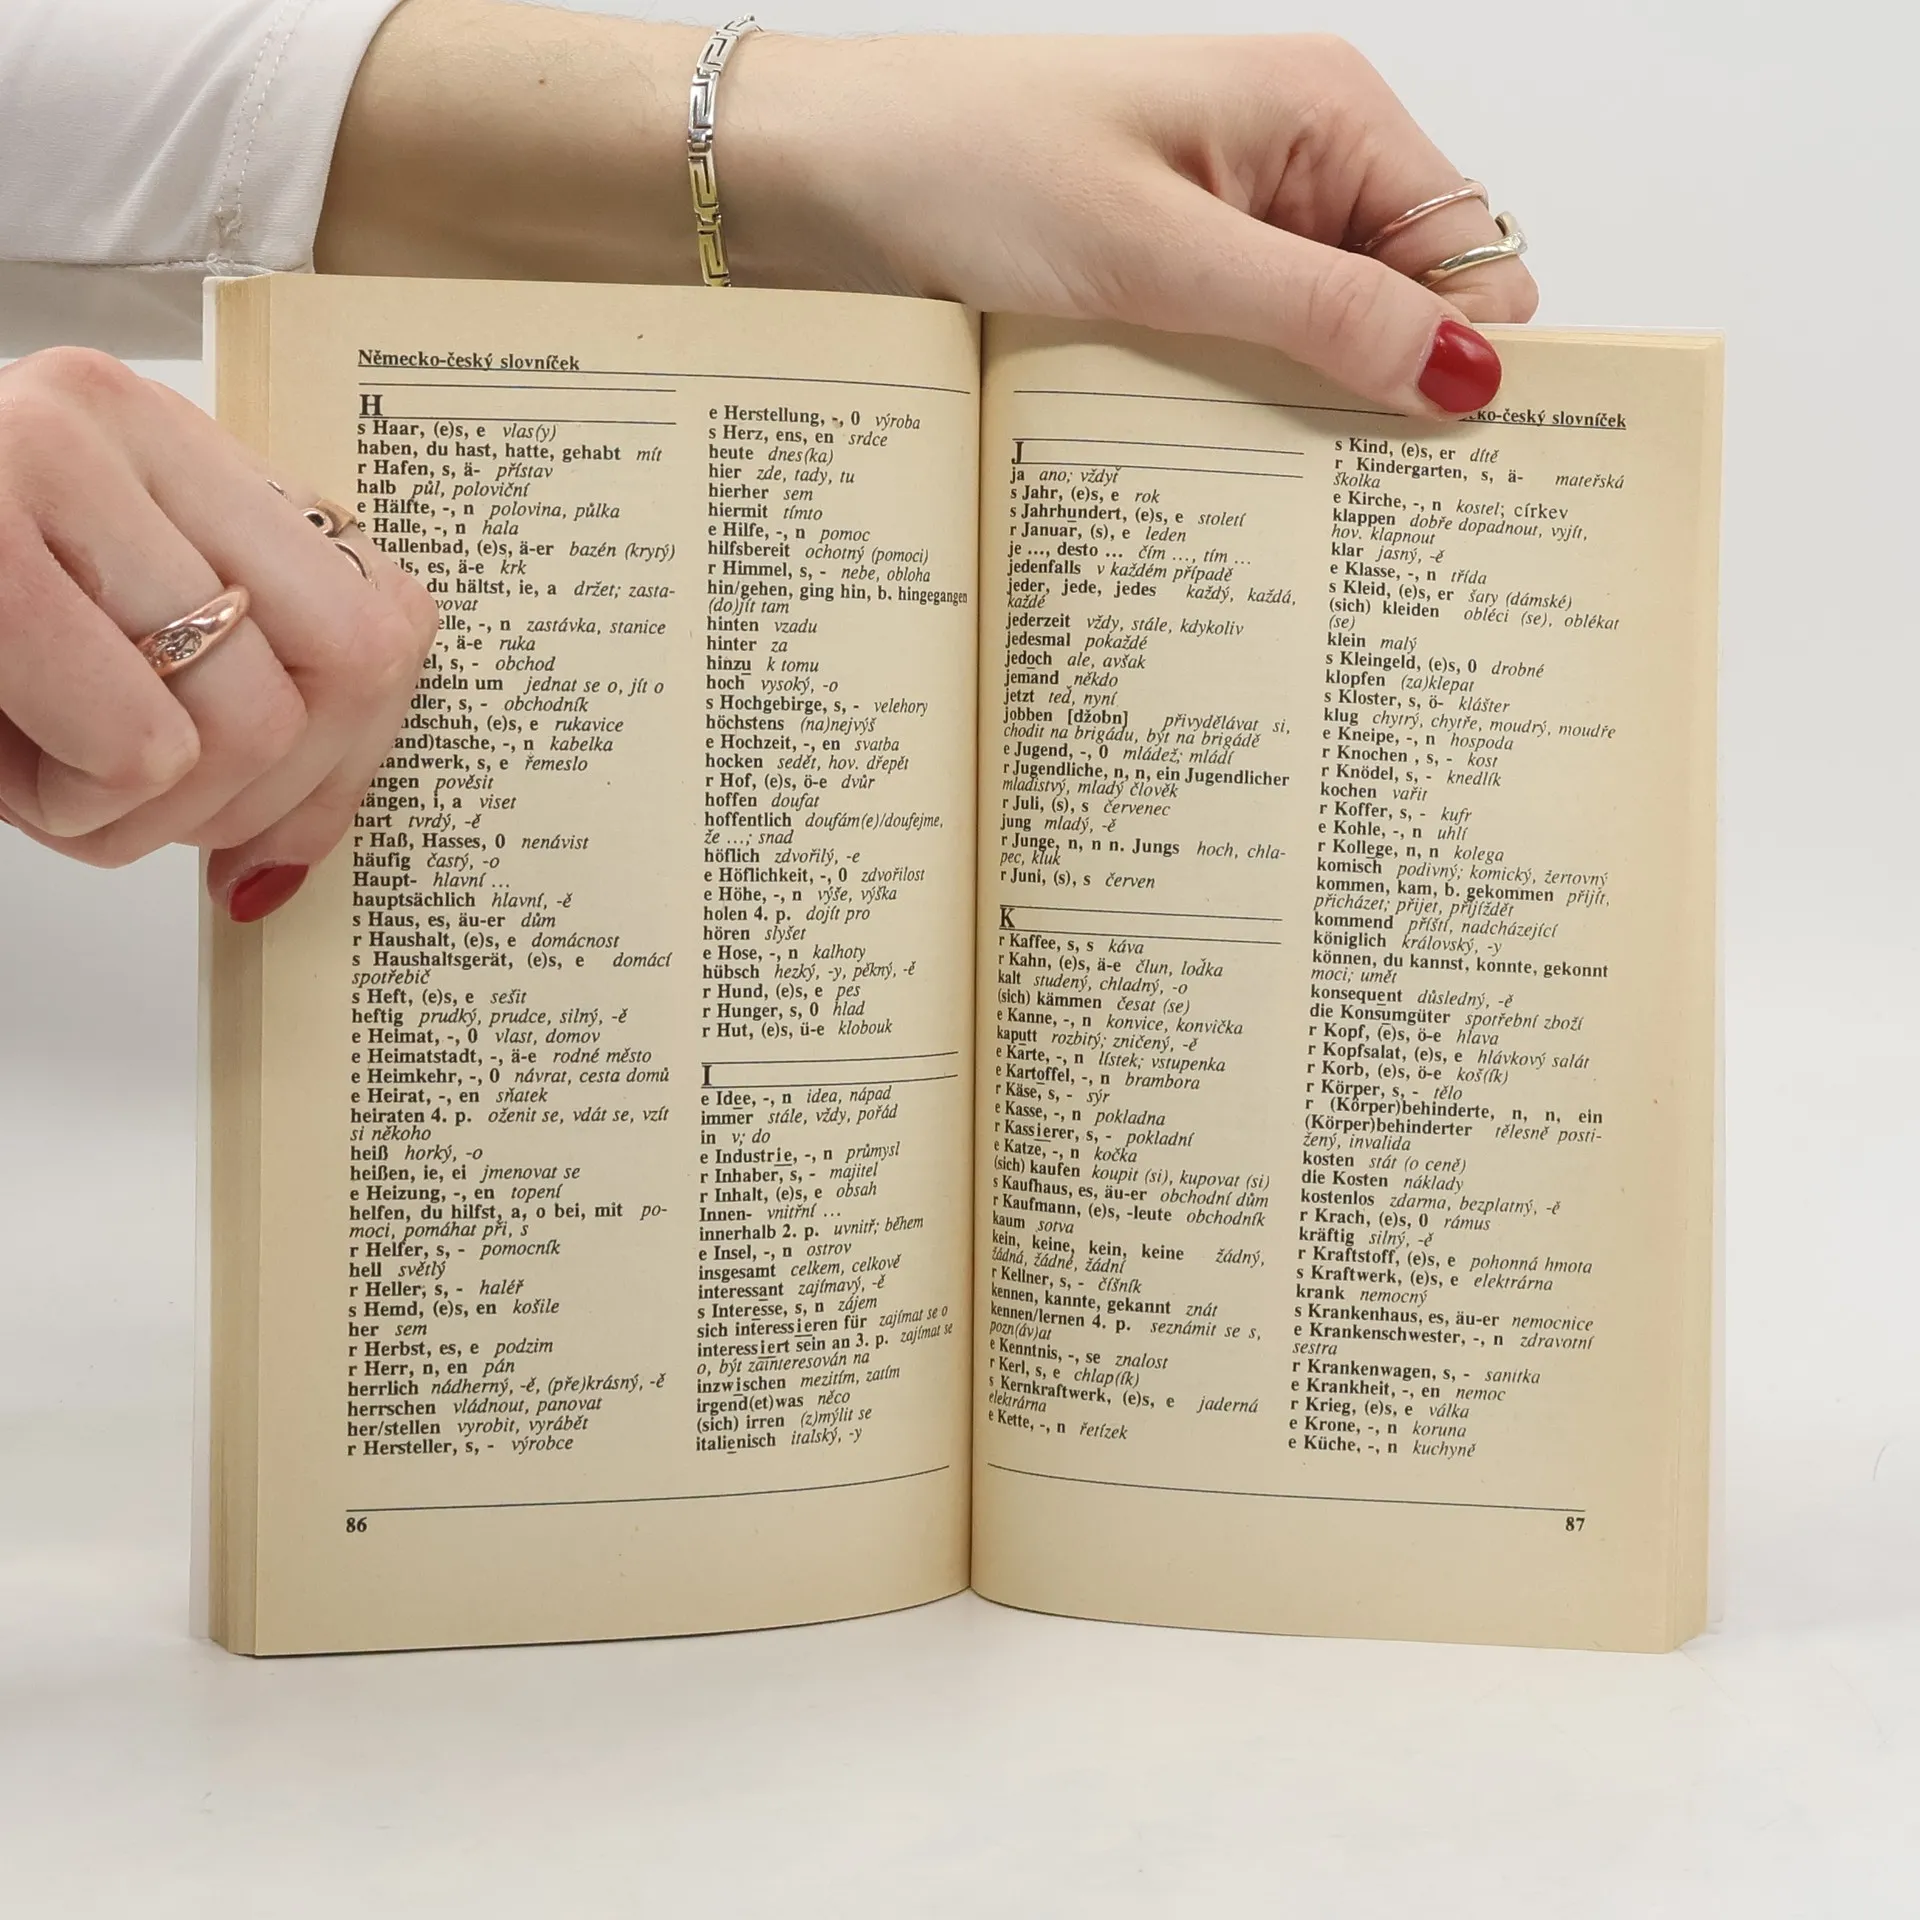 Německo-český slovníček
H
s Haar, (e)s, e vlas(y)
haben, du hast, hatte, gehabt mít
r Hafen, s, ä- přístav
halb půl, poloviční
e Hälfte, -, n polovina, půlka
e Halle, -, n hala
Hallenbad, (e)s, ä-er bazén (krytý)
es, ä-e krk
du hältst, ie, a držet; zasta-
-, n zastávka, stanice
-, ä-e ruka
s, - obchod
um jednat se o, jít o
s, - obchodník
(e)s, e rukavice
-, n kabelka
s, e řemeslo
pověsit
i, a viset
hart tvrdý, -ě
r Haß, Hasses, 0 nenávist
häufig častý, -o
Haupt- hlavní ...
hauptsächlich hlavní, -ě
s Haus, es, äu-er dům
r Haushalt, (e)s, e domácnost
s Haushaltsgerät, (e)s, e domácí
spotřebič
s Heft, (e)s, e sešit
heftig prudký, prudce, silný, -ě
e Heimat, -, 0 vlast, domov
e Heimatstadt, -, ä-e rodné město
e Heimkehr, -, 0 návrat, cesta domů
e Heirat, -, en sňatek
heiraten 4. p. oženit se, vdát se, vzít
si někoho
heiß horký, -o
heißen, ie, ei jmenovat se
e Heizung, -, en topení
helfen, du hilfst, a, o bei, mit po-
moci, pomáhat při, s
r Helfer, s, - pomocník
hell světlý
r Heller, s, - haléř
s Hemd, (e)s, en košile
her sem
r Herbst, es, e podzim
r Herr, n, en pán
herrlich nádherný, -ě, (pře)krásný, -ě
herrschen vládnout, panovat
her/stellen vyrobit, vyrábět
r Hersteller, s, - výrobce
e Herstellung, -, 0 výroba
s Herz, ens, en srdce
heute dnes(ka)
hier zde, tady, tu
hierher sem
hiermit tímto
e Hilfe, -, n pomoc
hilfsbereit ochotný (pomoci)
r Himmel, s, - nebe, obloha
hin/gehen, ging hin, b. hingegangen
(do)jít tam
hinten vzadu
hinter za
hinzu k tomu
hoch vysoký, -o
s Hochgebirge, s, - velehory
höchstens (na)nejvýš
e Hochzeit, -, en svatba
hocken sedět, hov. dřepět
r Hof, (e)s, ö-e dvůr
hoffen doufat
hoffentlich doufám(e)/doufejme,
že ...; snad
höflich zdvořilý, -e
e Höflichkeit, -, 0 zdvořilost
e Höhe, -, n výše, výška
holen 4. p. dojít pro
hören slyšet
e Hose, -, n kalhoty
hübsch hezký, -y, pěkný, -ě
r Hund, (e)s, e pes
r Hunger, s, 0 hlad
r Hut, (e)s, ü-e klobouk
I
e Idee, -, n idea, nápad
immer stále, vždy, pořád
in v; do
e Industrie, -, n průmysl
r Inhaber, s, - majitel
r Inhalt, (e)s, e obsah
Innen- vnitřní ...
innerhalb 2. p. uvnitř; během
e Insel, -, n ostrov
insgesamt celkem, celkově
interessant zajímavý, -ě
s Interesse, s, n zájem
sich interessieren für zajímat se o
interessiert sein an 3. p. zajímat se
o, být zainteresován na
inzwischen mezitím, zatím
irgend(et)was něco
(sich) irren (z)mýlit se
italienisch italský, -y
86
ko-český slovníček
J
ja ano; vždyť
s Jahr, (e)s, e rok
s Jahrhundert, (e)s, e století
r Januar, (s), e leden
je ..., desto ... čím ..., tím ...
jedenfalls v každém případě
jeder, jede, jedes každý, každá,
každé
jederzeit vždy, stále, kdykoliv
jedesmal pokaždé
jedoch ale, avšak
jemand někdo
jetzt teď, nyní
jobben [džobn] přivydělávat si,
chodit na brigádu, být na brigádě
e Jugend, -, 0 mládež; mládí
r Jugendliche, n, n, ein Jugendlicher
mladistvý, mladý člověk
r Juli, (s), s červenec
jung mladý, -ě
r Junge, n, n n. Jungs hoch, chla-
pec, kluk
r Juni, (s), s červen
K
r Kaffee, s, s káva
r Kahn, (e)s, ä-e člun, loďka
kalt studený, chladný, -o
(sich) kämmen česat (se)
e Kanne, -, n konvice, konvička
kaputt rozbitý; zničený, -ě
e Karte, -, n lístek; vstupenka
e Kartoffel, -, n brambora
r Käse, s, - sýr
e Kasse, -, n pokladna
r Kassierer, s, - pokladní
e Katze, -, n kočka
(sich) kaufen koupit (si), kupovat (si)
s Kaufhaus, es, äu-er obchodní dům
r Kaufmann, (e)s, -leute obchodník
kaum sotva
kein, keine, kein, keine žádný,
žádná, žádné, žádní
r Kellner, s, - číšník
kennen, kannte, gekannt znát
kennen/lernen 4. p. seznámit se s,
pozn(áv)at
e Kenntnis, -, se znalost
r Kerl, s, e chlap(ík)
s Kernkraftwerk, (e)s, e jaderná
elektrárna
e Kette, -, n řetízek
s Kind, (e)s, er dítě
r Kindergarten, s, ä- mateřská
školka
e Kirche, -, n kostel; církev
klappen dobře dopadnout, vyjít,
hov. klapnout
klar jasný, -ě
e Klasse, -, n třída
s Kleid, (e)s, er šaty (dámské)
(sich) kleiden obléci (se), oblékat
(se)
klein malý
s Kleingeld, (e)s, 0 drobné
klopfen (za)klepat
s Kloster, s, ö- klášter
klug chytrý, chytře, moudrý, moudře
e Kneipe, -, n hospoda
r Knochen , s, - kost
r Knödel, s, - knedlík
kochen vařit
r Koffer, s, - kufr
e Kohle, -, n uhlí
r Kollege, n, n kolega
komisch podivný; komický, žertovný
kommen, kam, b. gekommen přijít,
přicházet; přijet, přijíždět
kommend příští, nadcházející
königlich královský, -y
können, du kannst, konnte, gekonnt
moci; umět
konsequent důsledný, -ě
die Konsumgüter spotřební zboží
r Kopf, (e)s, ö-e hlava
r Kopfsalat, (e)s, e hlávkový salát
r Korb, (e)s, ö-e koš(ík)
r Körper, s, - tělo
r (Körper)behinderte, n, n, ein
(Körper)behinderter tělesně posti-
žený, invalida
kosten stát (o ceně)
die Kosten náklady
kostenlos zdarma, bezplatný, -ě
r Krach, (e)s, 0 rámus
kräftig silný, -ě
r Kraftstoff, (e)s, e pohonná hmota
s Kraftwerk, (e)s, e elektrárna
krank nemocný
s Krankenhaus, es, äu-er nemocnice
e Krankenschwester, -, n zdravotní
sestra
r Krankenwagen, s, - sanitka
e Krankheit, -, en nemoc
r Krieg, (e)s, e válka
e Krone, -, n koruna
e Küche, -, n kuchyně
87